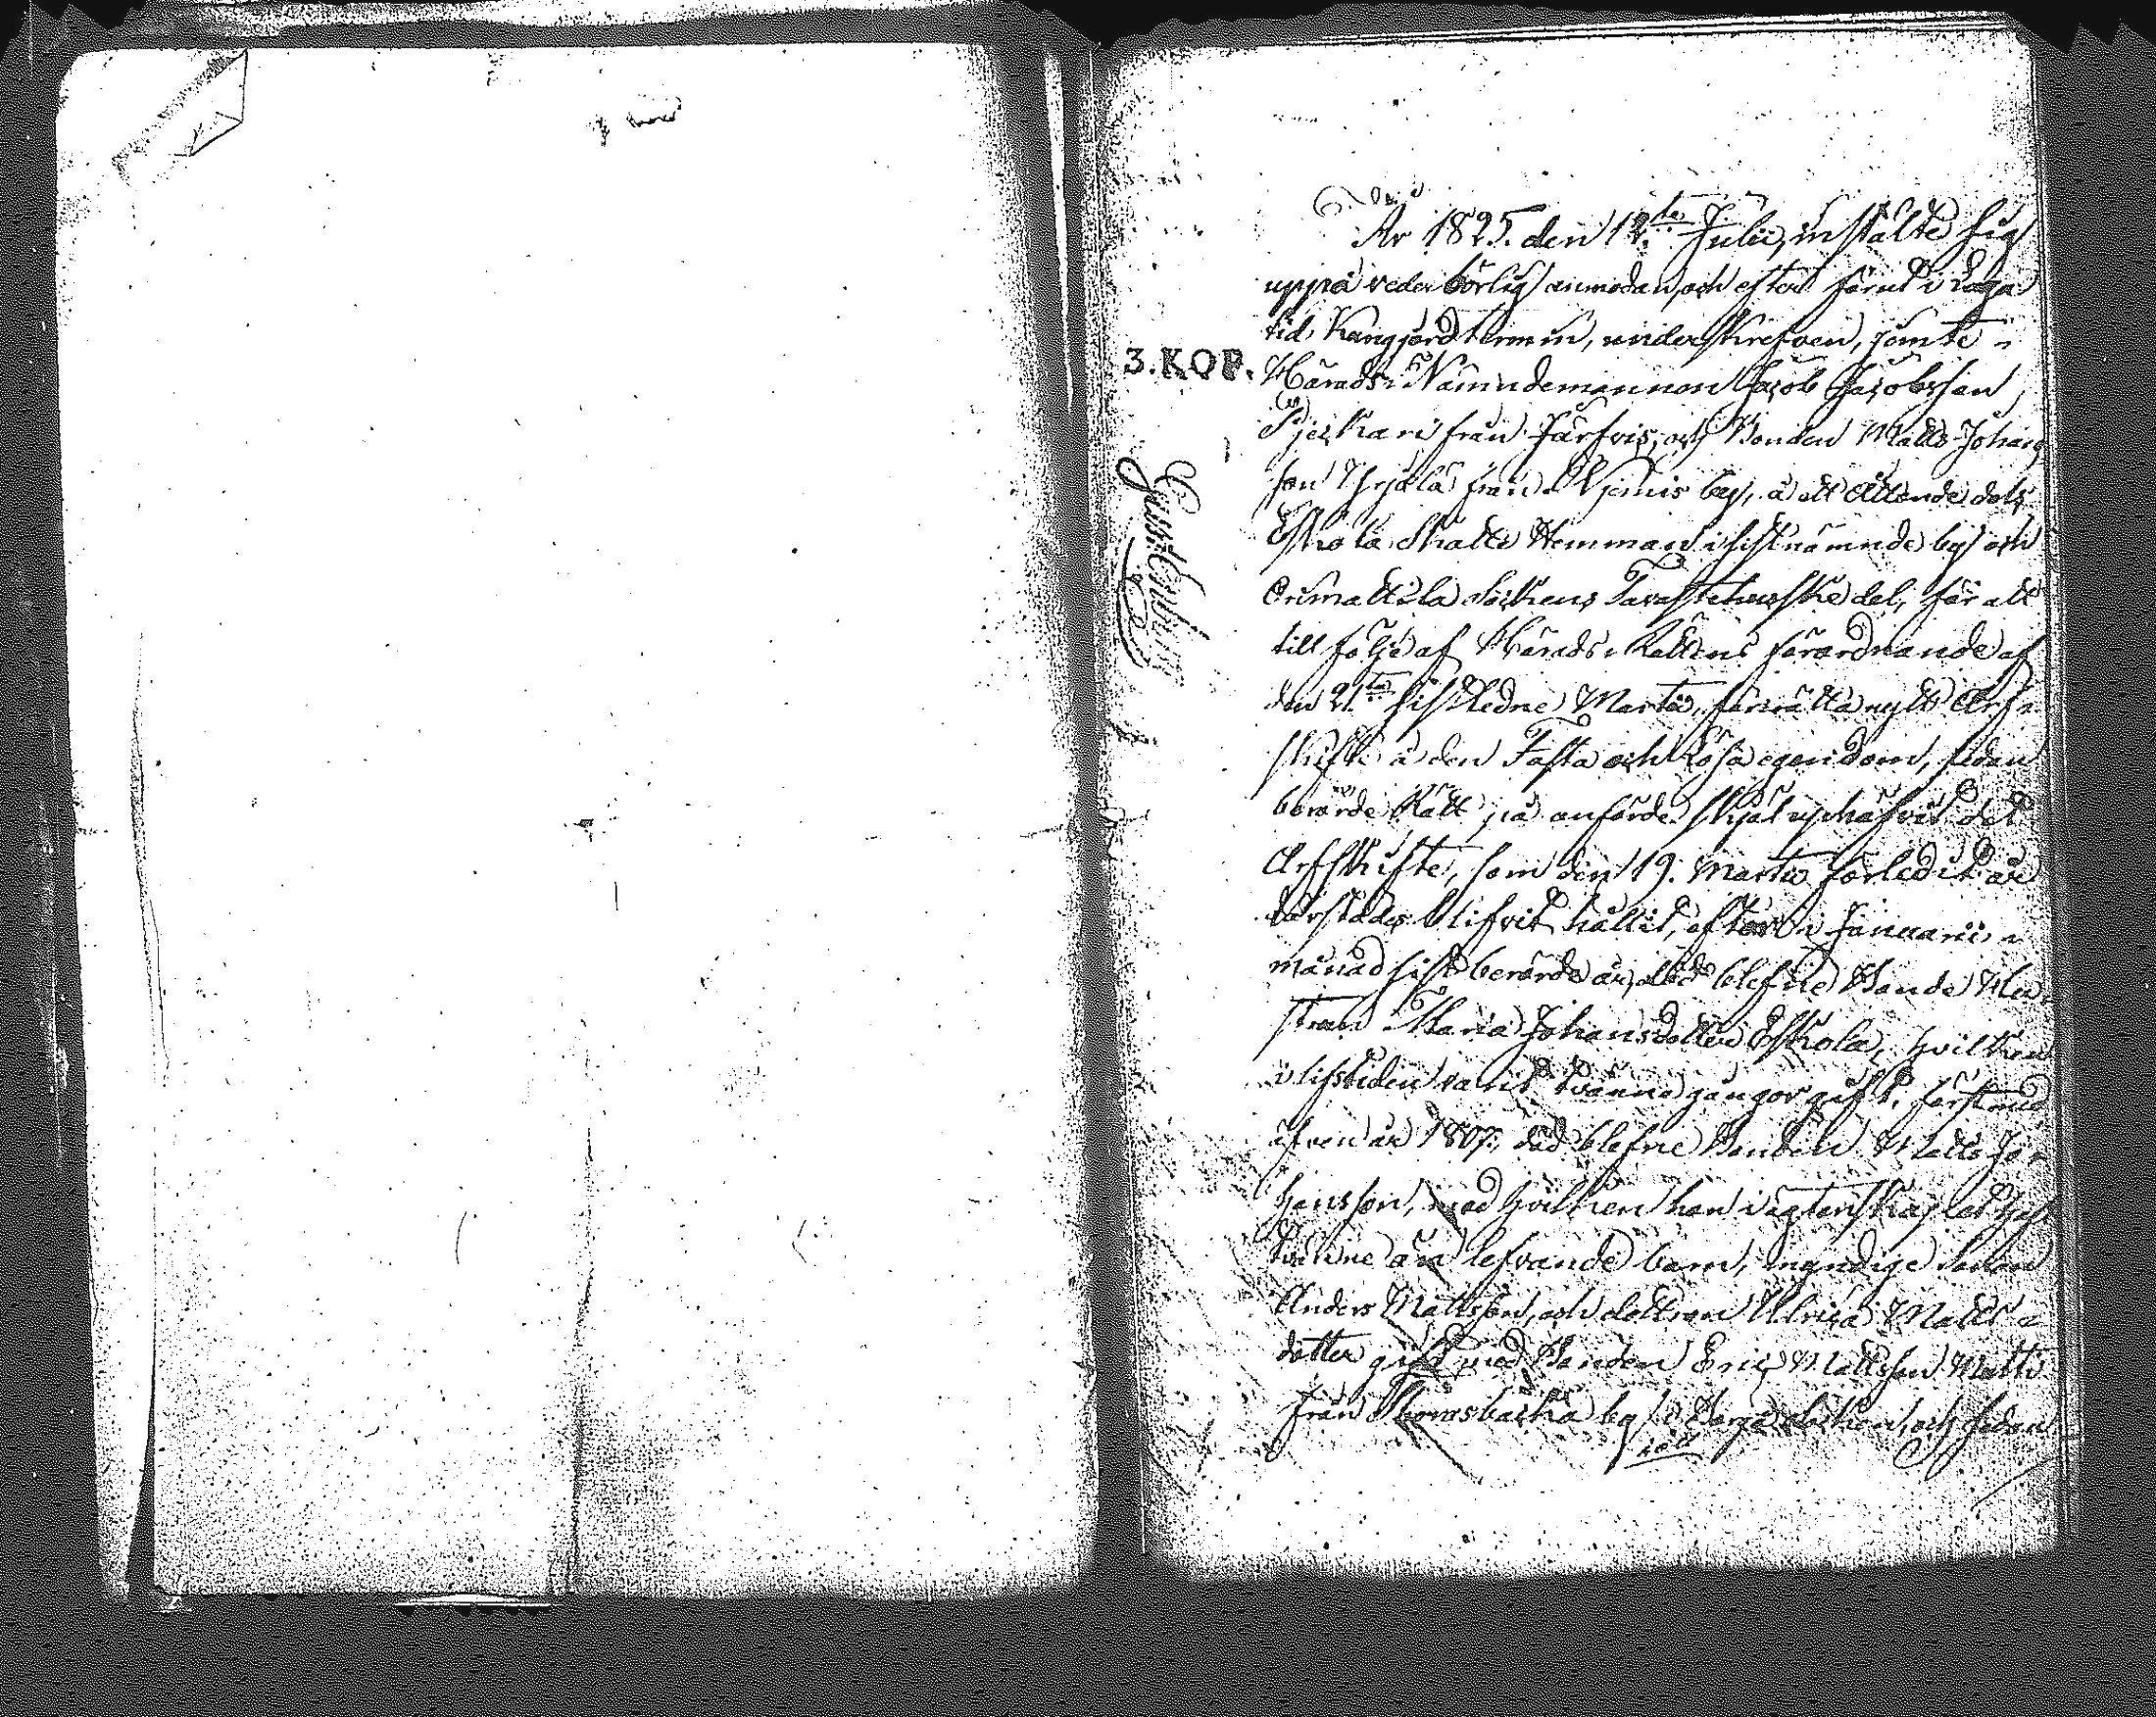 År 1825. den 12.te Julii, instälte sig
uppå vederbörlig anmodan, och efter förut i laga
tid kungjord termin, underskrefven, jemte
3. KOP. Härads Nämndemannen Jacob Jacobsson
från Järfvis, och Bonden Matts Johans
son Yrjölä från by, å ett Åttondedels
Eskola Skatte Hemman i sistnämnde by och
Orimattila Sockens Tavastehusske del, för att
till följe af Härads Rättens förordnande af
den 21.te sistledne Martii, förrätta nytt Arf-
skifte å den Fasta och Lösa egendom, sedan
berörde Rätt på anförde skjäl uphäfvit det
Arfskifte, som den 19. Martii förledit år
därstädes blifvit hållit, efter i Januarii
månad sist berörde år, död blefne Bonde Hu-
strun Maria Johansdotter Eskola, hvilken
i lifstiden varit tvänne gångor gift, först med
åfven år 1807, död blefne Bonden Matts Jo-
hansson, med hvilken hon i ägtenskap
tvänne än lefvande barn, myndige sonen
Anders Mattsson, och dottren Ulrica Matts-
dotter gift med Bonden Eric Mattsson Matti
från by i Borgå Socken, och sedan